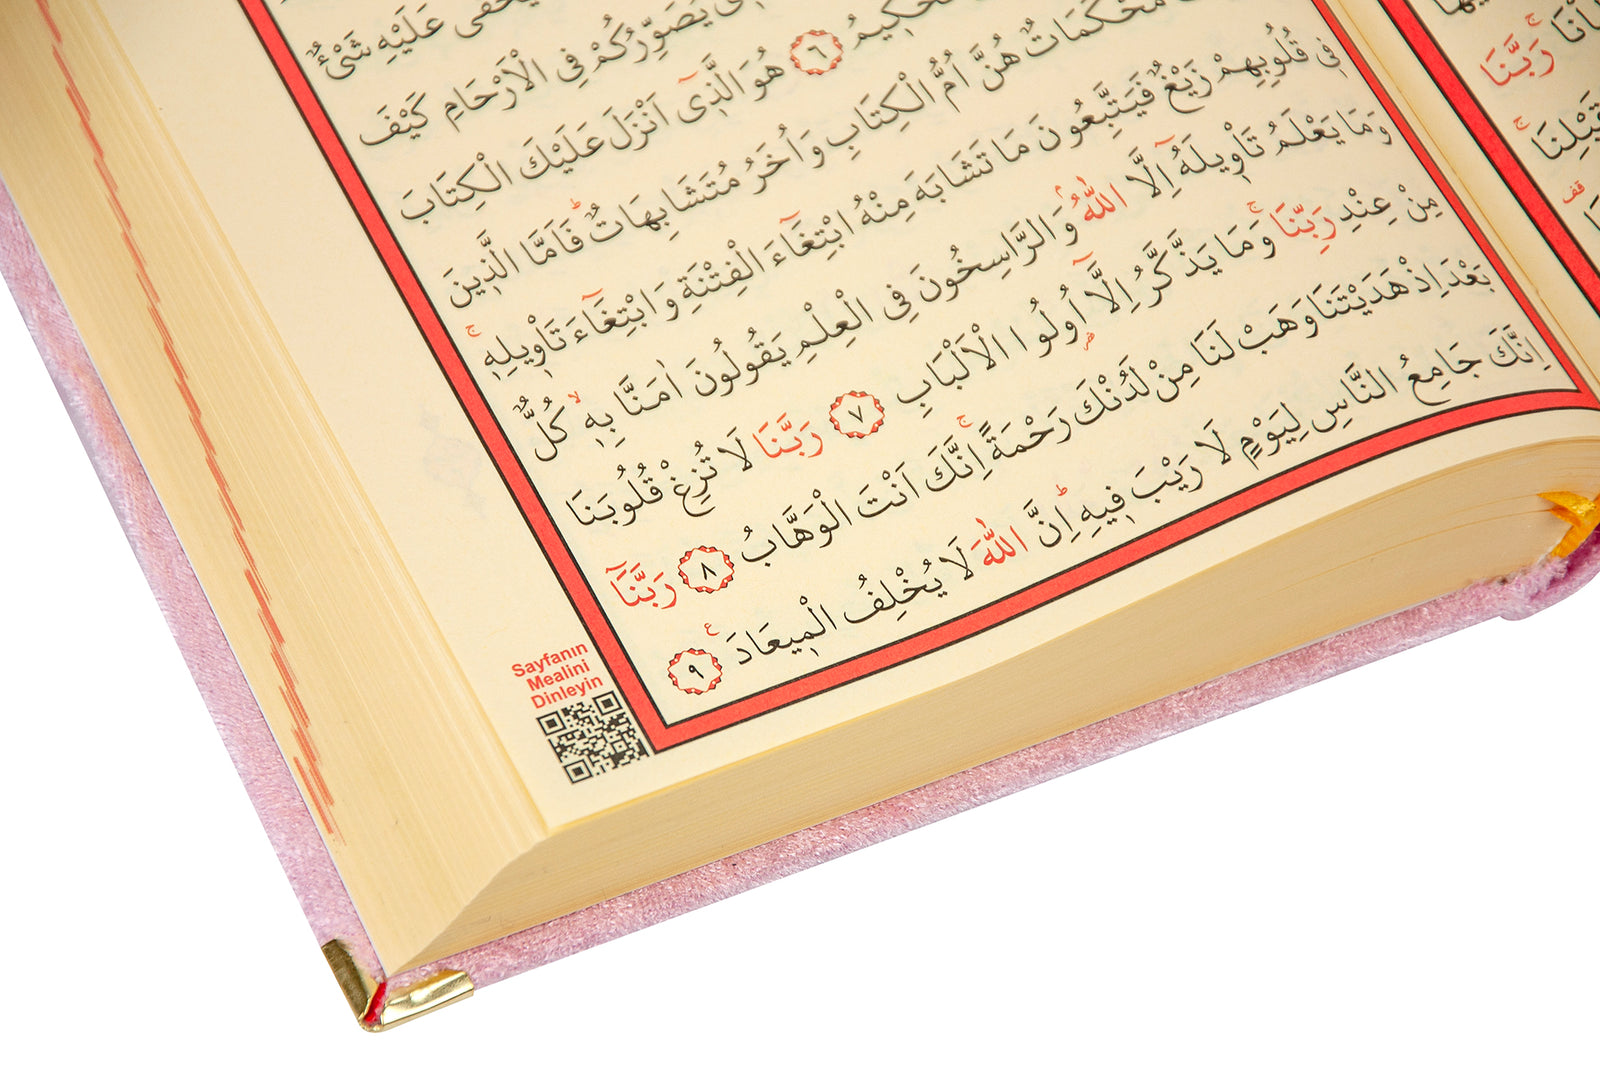 عَلَيْهِ شَيْءٌ
يُصَوِّرُكُمْ فِي الْاَرْحَامِ كَيْفَ
الْحَكِيمُ ٦ هُوَ الَّذِٓي اَنْزَلَ عَلَيْكَ الْكِتَابَ
مُحْكَمَاتٌ هُنَّ اُمُّ الْكِتَابِ وَاُخَرُ مُتَشَابِهَاتٌۜ فَاَمَّا الَّذِينَ
فِي قُلُوبِهِمْ زَيْغٌ فَيَتَّبِعُونَ مَا تَشَابَهَ مِنْهُ ابْتِغَٓاءَ الْفِتْنَةِ وَابْتِغَٓاءَ تَاْوِيلِهِۚ
وَمَا يَعْلَمُ تَاْوِيلَهُٓ اِلَّا اللّٰهُۢ وَالرَّاسِخُونَ فِي الْعِلْمِ يَقُولُونَ اٰمَنَّا بِهِۙ كُلٌّ
مِنْ عِنْدِ رَبِّنَاۚ وَمَا يَذَّكَّرُ اِلَّٓا اُولُوا الْاَلْبَابِ ٧ رَبَّنَا لَا تُزِغْ قُلُوبَنَا
بَعْدَ اِذْ هَدَيْتَنَا وَهَبْ لَنَا مِنْ لَدُنْكَ رَحْمَةًۚ اِنَّكَ اَنْتَ الْوَهَّابُ ٨ رَبَّنَٓا
اِنَّكَ جَامِعُ النَّاسِ لِيَوْمٍ لَا رَيْبَ فِيهِۜ اِنَّ اللّٰهَ لَا يُخْلِفُ الْمِيعَادَ ٩
Sayfanın
Mealini
Dinleyin
رَبَّنَا